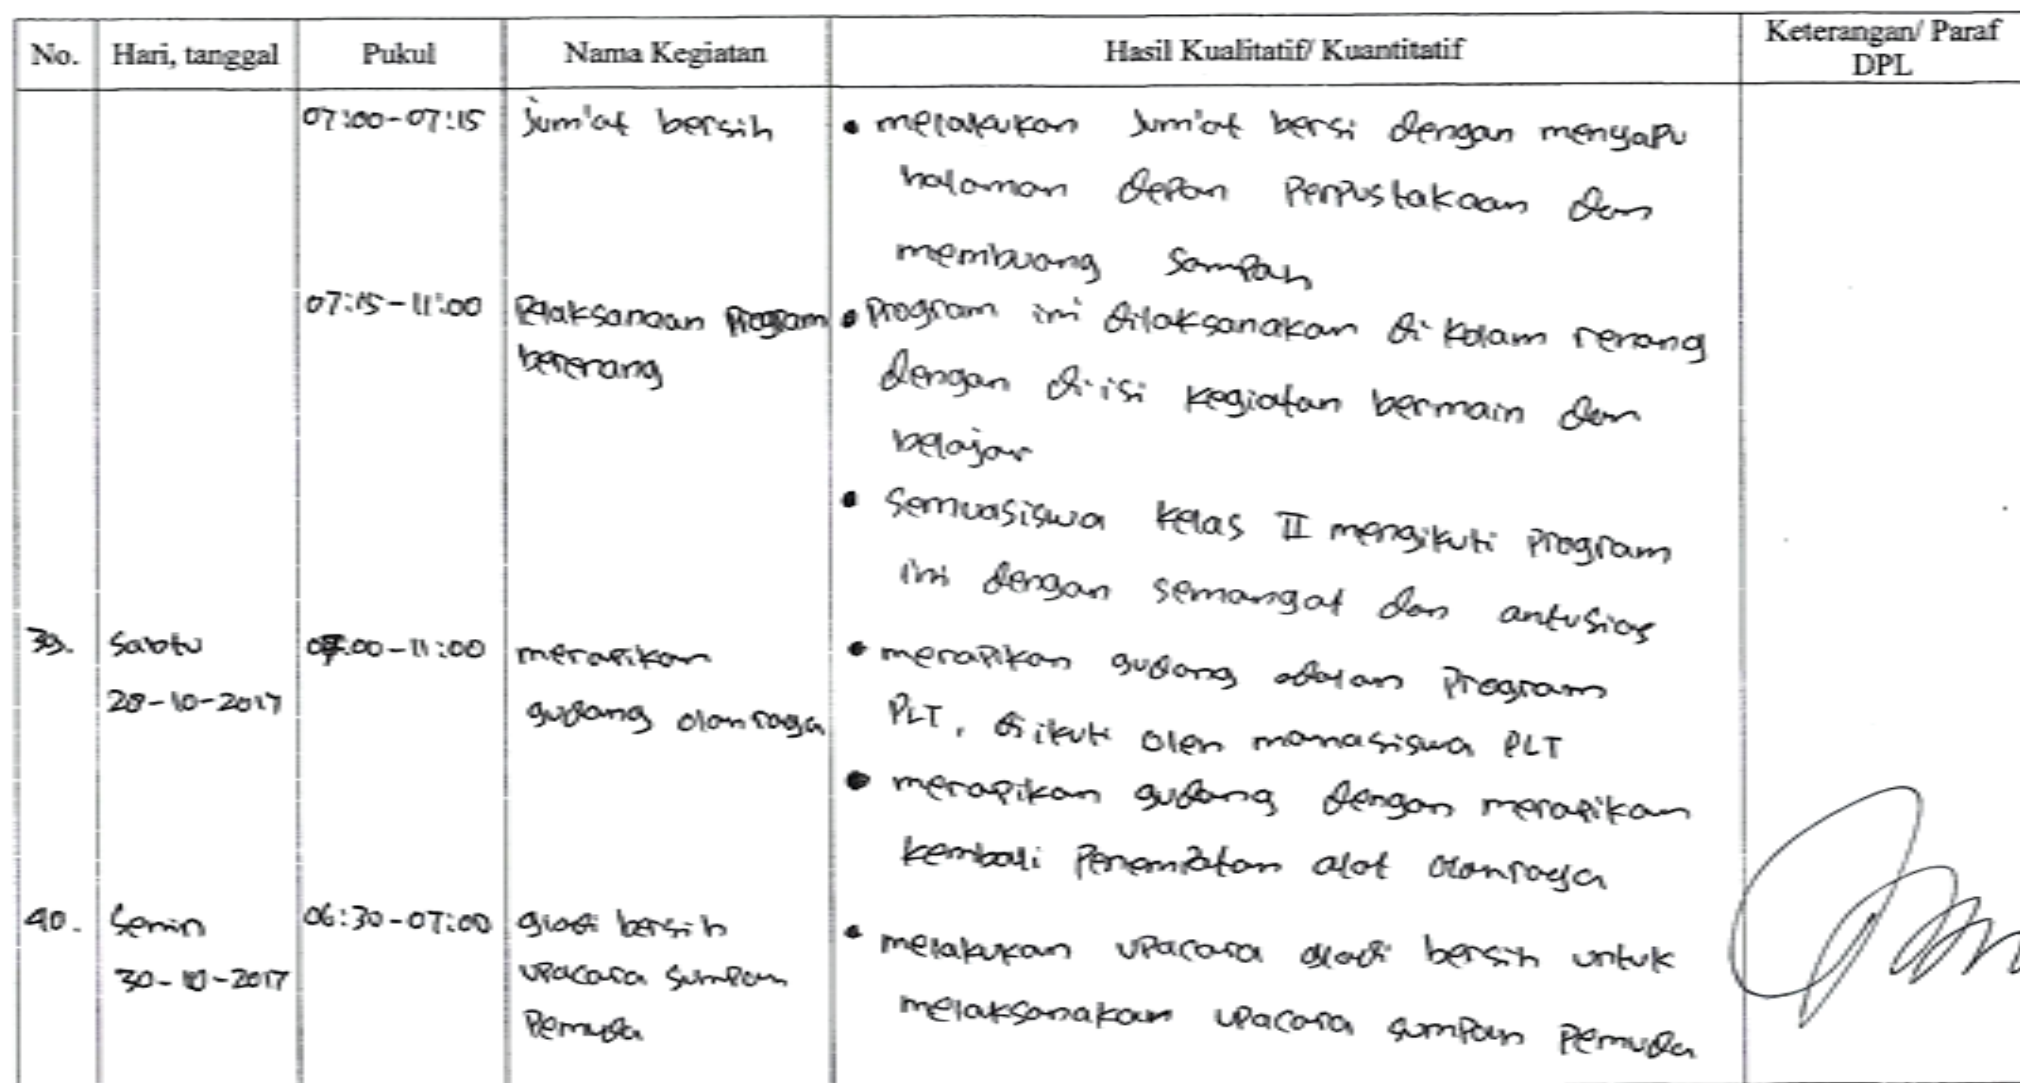 No. Hari, tanggal Pukul Nama Kegiatan Hasil Kualitatif/ Kuantitatif Keterangan/ Paraf DPL
07:00-07:15 jum'at bersih • melakukan Jum'at bersi dengan menyapu
halaman depan Perpustakaan dan
membuang Sampah
07:15-11:00 Pelaksanaan Program • Program ini dilaksanakan di kolam renang
berenang dengan di isi kegiatan bermain dan
belajar
• Semuasiswa kelas II mengikuti Program
ini dengan semangat dan antusias
39. Sabtu 07:00-11:00 merapikan • merapikan gudang adalah Program
28-10-2017 gudang olahraga PLT, di ikuti oleh mahasiswa PLT
• merapikan gudang dengan merapikan
kembali Penempatan alat olahraga
40. Senin 06:30-07:00 gladi bersih • melakukan upacara gladi bersih untuk
30-10-2017 upacara sumpah melaksanakan upacara sumpah Pemuda
Pemuda